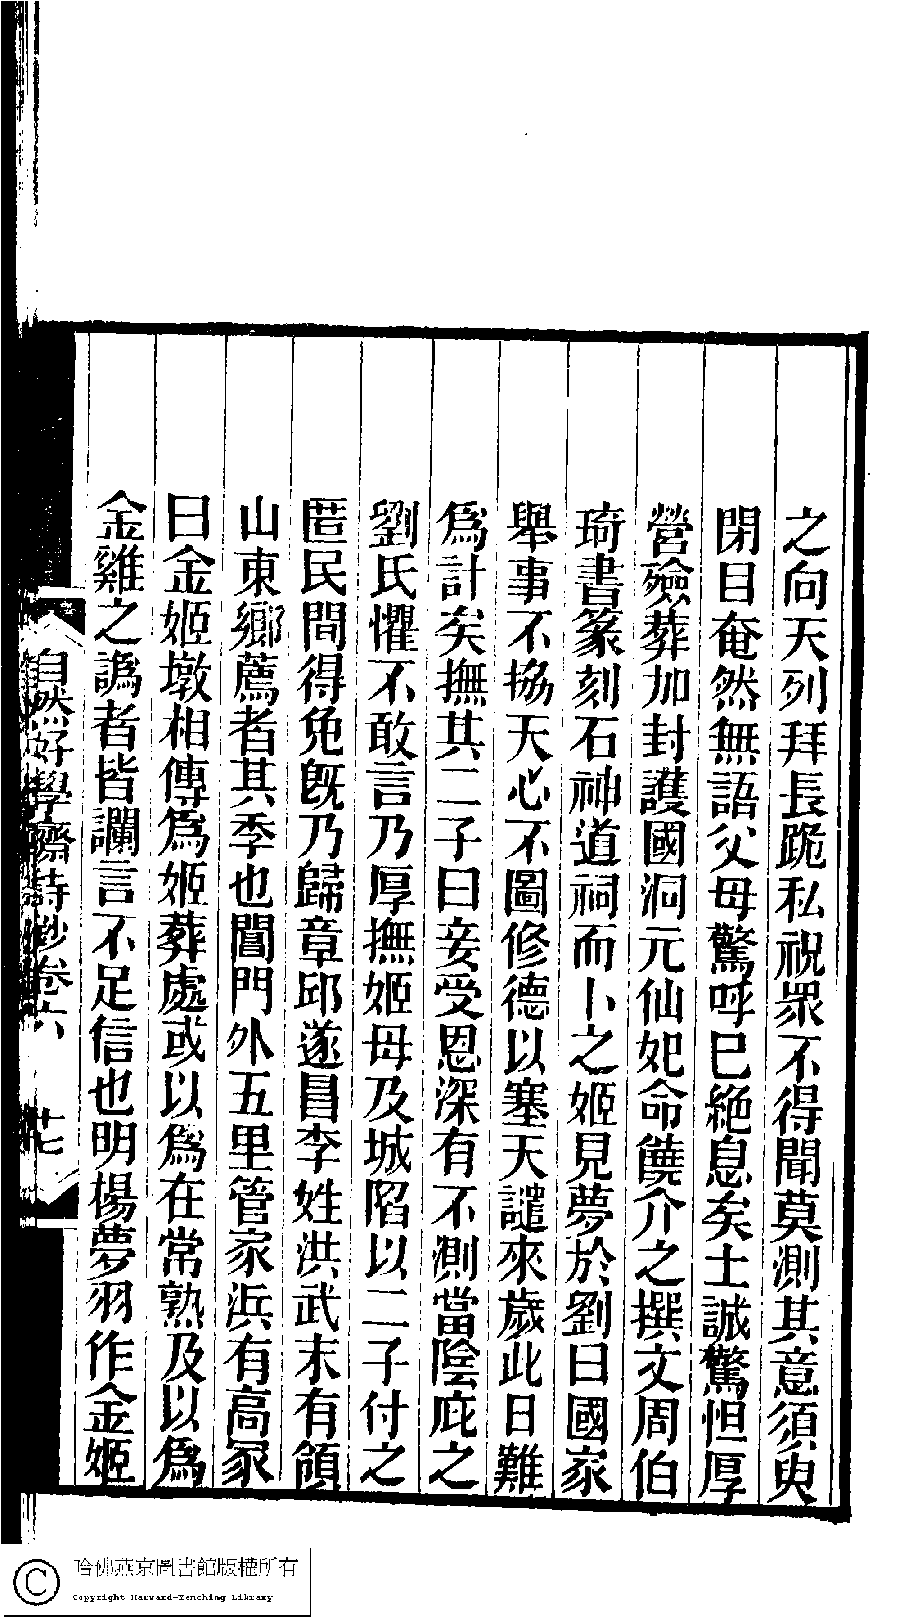 之向天列拜長跪私祝眾不得聞莫測其意須臾
閉目奄然無語父母驚呼已絕息矣士誠驚怛厚
營殮葬加封護國洞元仙妃命饒介之撰文周伯
琦書篆刻石神道祠而卜之姬見夢於劉曰國家
舉事不協天心不圖修德以塞天譴來歲此日難
爲計矣撫其二子曰妾受恩深有不測當陰庇之
劉氏懼不敢言乃厚撫姬母及城陷以二子付之
匿民間得免旣乃歸章邱遂昌李姓洪武末有領
山東鄉薦者其季也閶門外五里管家浜有高冢
曰金姬墩相傳爲姬葬處或以爲在常熟及以爲
金雞之譌者皆讕言不足信也明楊夢羽作金姬
自然好學齋詩鈔卷六 廿七
哈佛燕京圖書館版權所有
Copyright Harvard-Yenching Library